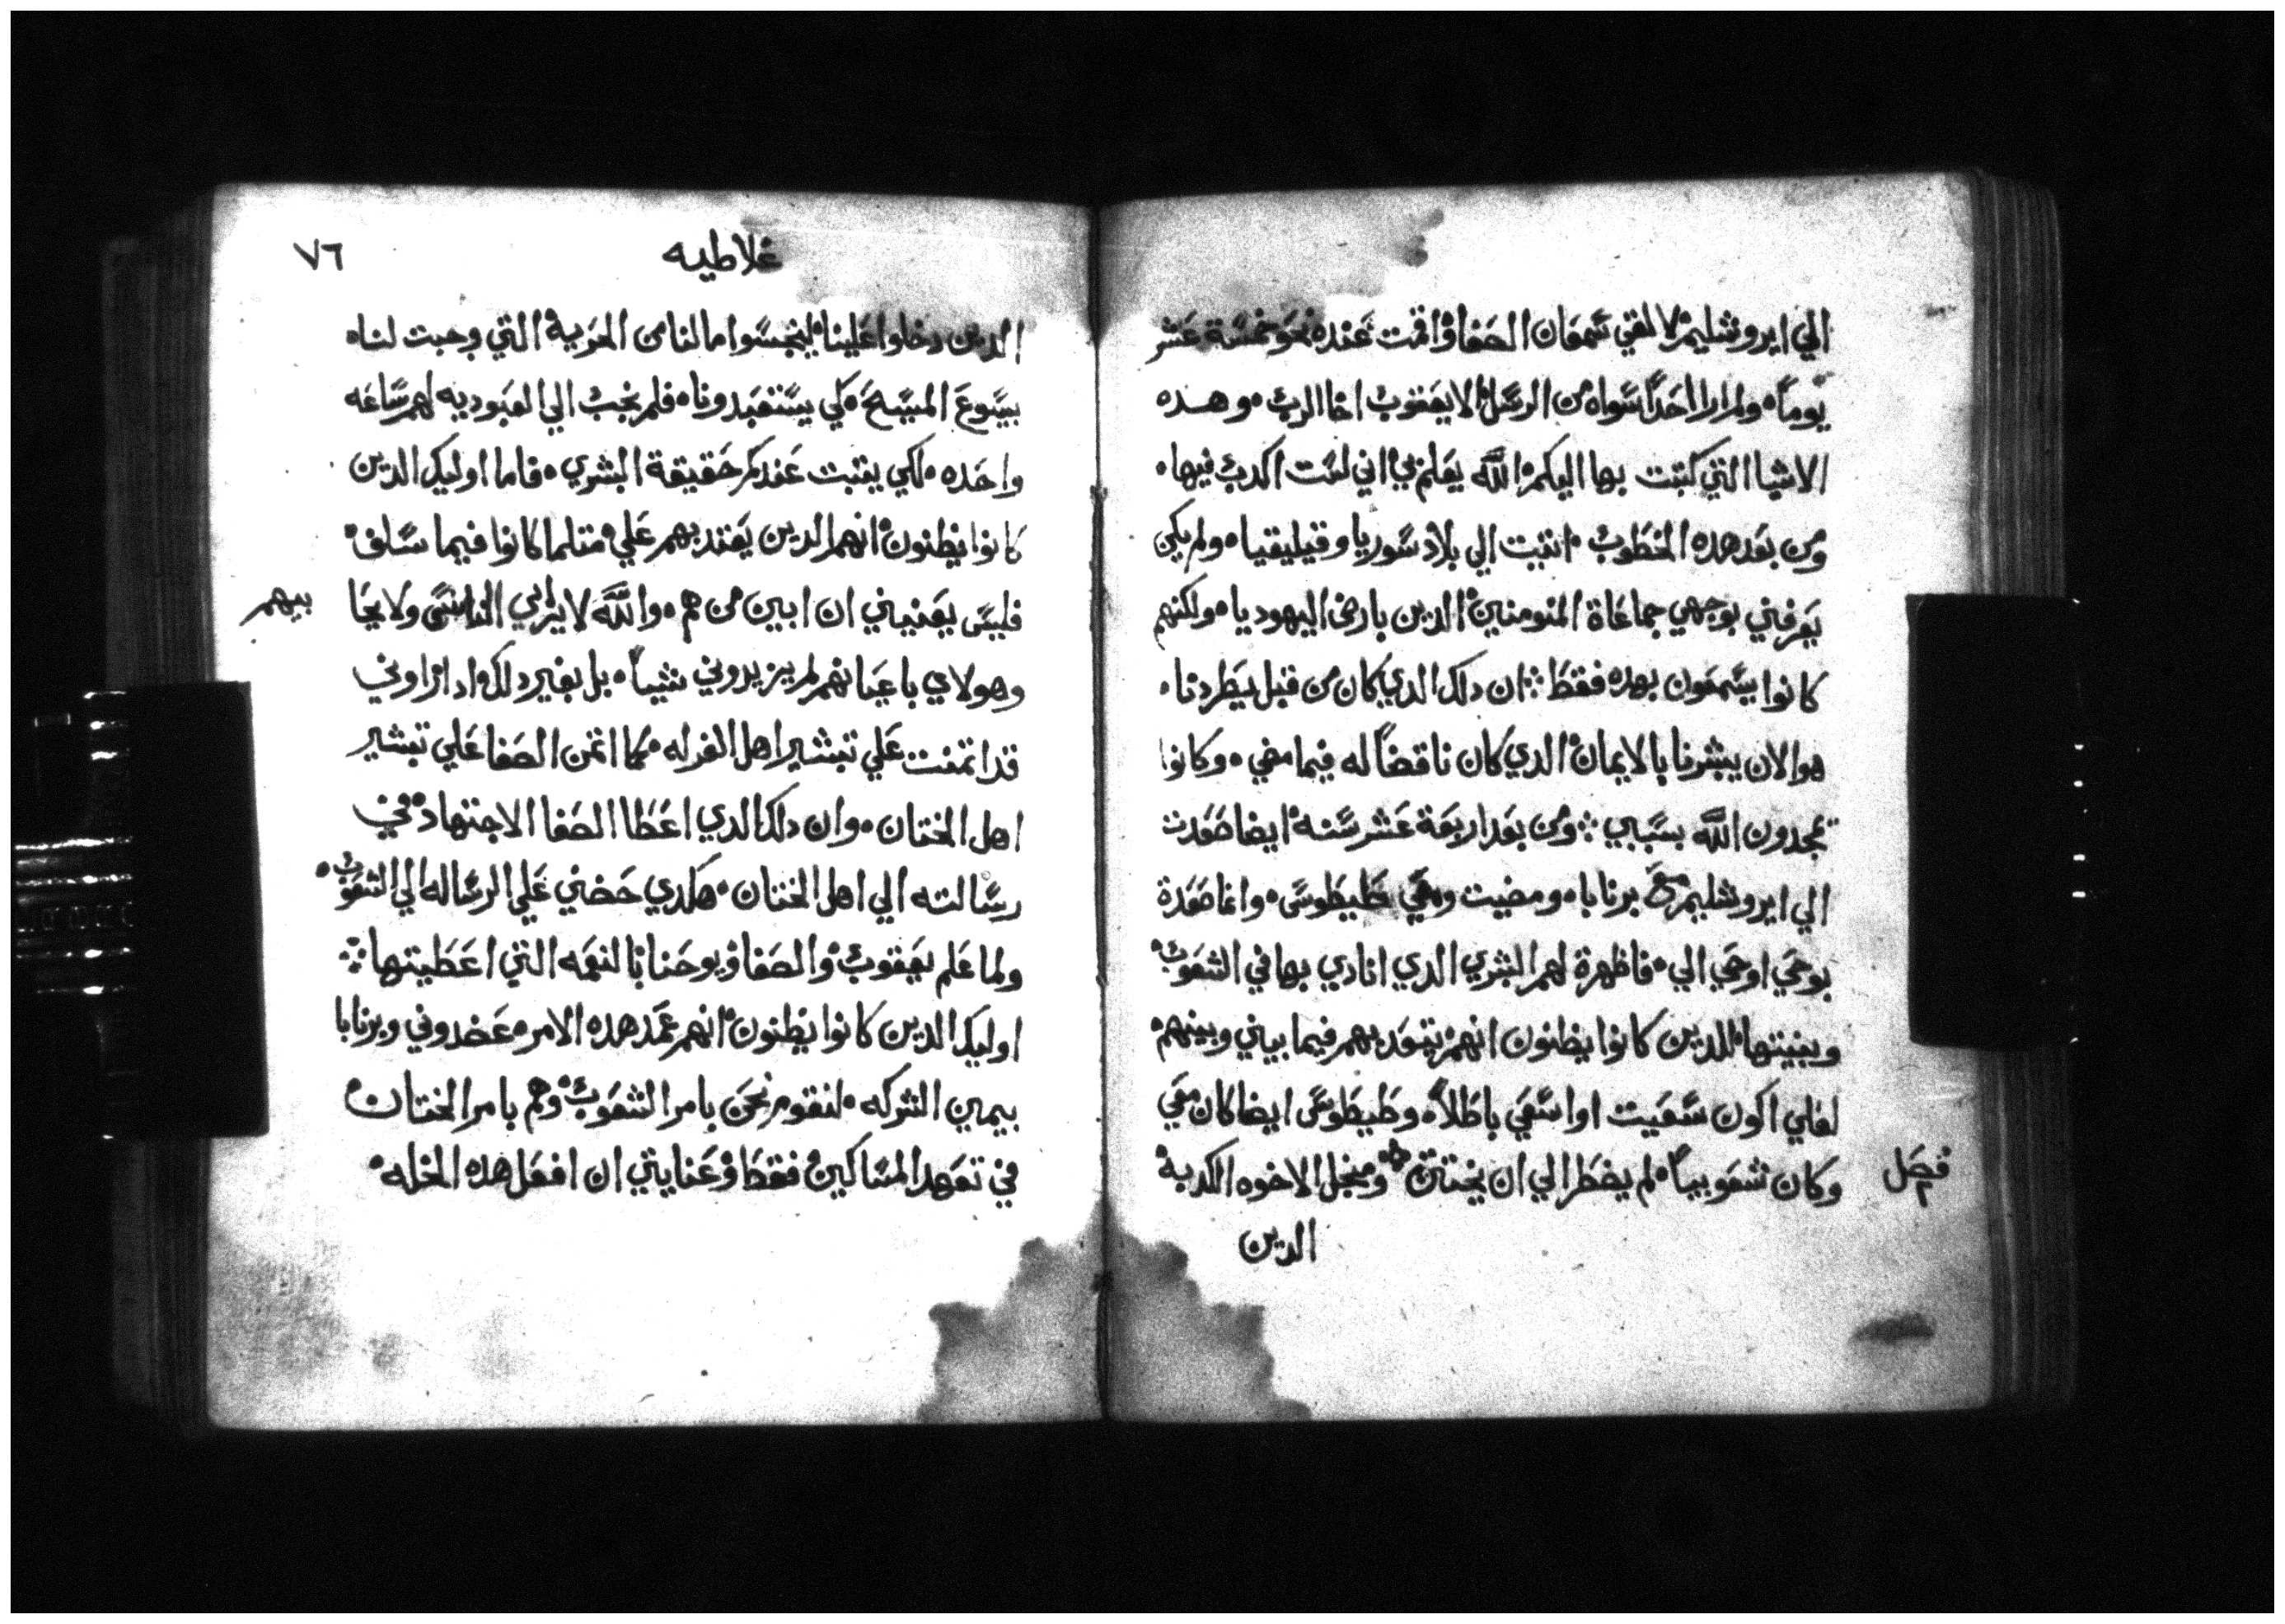 الي ايروشليم لالقي سمعان الصفا واقمت عنده نحو خمسة عشر
يوماً ولم ارا احداً سواه من الرسل الا يعقوب اخا الرب وهده
الاشيا التي كتبت بها اليكم الله يعلم بي اني لست اكدب فيها
ومن بعد هده الخطوب اتيت الي بلاد سوريا وقيليقيا ولم يكن
يعرفني بوجهي جماعاة المومنين الدين بارض اليهوديا ولكنهم
كانوا يسمعون بهده فقط ان دلك الدي كان من قبل يطردنا
هو الان يبشرنا بالايمان الدي كان ناقضاً له فيما مضي وكانوا
يمجدون الله بسببي ومن بعد اربعة عشر سنه ايضا صعدت
الي ايروشليم مع برنابا ومضيت ومعي طيطوس وانما صعدة
بوحي اوحي الي فاظهرة لهم البشري الدي انادي بها في الشعوب
وبينتها للدين كانوا يظنون انهم يتعد بهم فيما بيني وبينهم
لعلي اكون سعيت او اسعي باطلاً وطيطوس ايضا كان معي
وكان شعوبياً لم يضطر الي ان يختتن ومنجل الاخوه الكدبه
فصل
الدين
غلاطيه
٧٦
الدين دخلوا علينا ليتجسوا ما لنا من الحريه التي وجبت لنا
بيسوع المسيح كي يستعبدونا فلم نجب الي العبوديه لهم ساعه
واحده لكي يتبت عندكم حقيقة البشري فاما اوليك الدين
كانوا يظنون انهم الدين يعتد بهم علي متلما كانوا فيما سلف
فليس يعنيني ان ابين من هم والله لا يرابي الناس ولا يحا
بيهم
وهولاي باعيانهم لم يزيدوني شياً بل بغير دلك واد اراوني
قد اتمنت علي تبشير اهل الغرله كما اتمن الصفا علي تبشير
اهل الختان وان دلك الدي اعطا الصفا الاجتهاد في
رسالته الي اهل الختان هكدي حضني علي الرساله الي الشعوب
ولما علم يعقوب والصفا ويوحنا بالنعمه التي اعطيتها
اوليك الدين كانوا يظنون انهم عمد هده الامر عضدوني وبرنابا
بيمين الشركه لنقوم نحن بامر الشعوب وهم بامر الختان
في تعهد المساكين فقط وعنايتي ان افعل هده الخله